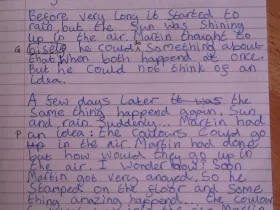 Before very long it started to
rain, but the sun was shining
up in the air. Martin thought to
G hisself he could something about
that, when both happend at once.
But he could not think of an
idea.
A few days later it was the
same thing happend again. Sun
and rain. Suddenly... Martin had
P an idea: the Coulours Could go
up in the air. Martin had done
but how would they go up in
the air. I wonder how! Soon
Martin got very anoyed. So he
stamped on the floor and some
thing amazing happend... the Coulour